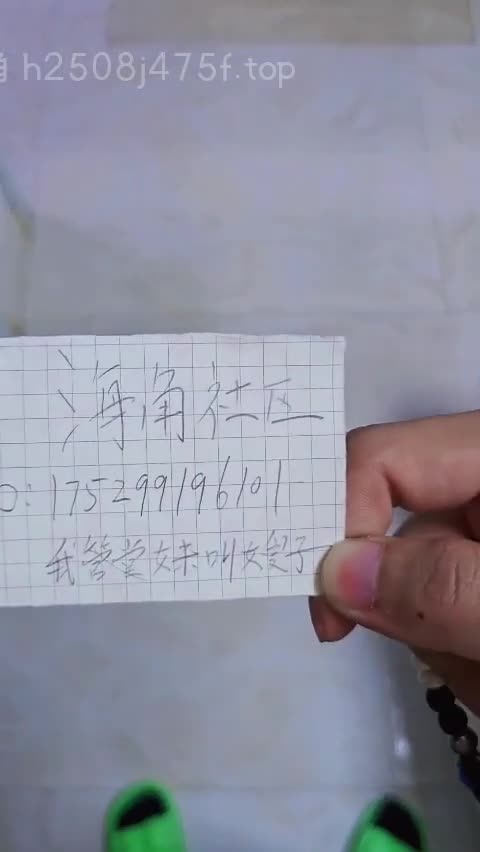 角 h2508j475f.top
海角社区
D: 175299196101
我管堂妹叫嫂子